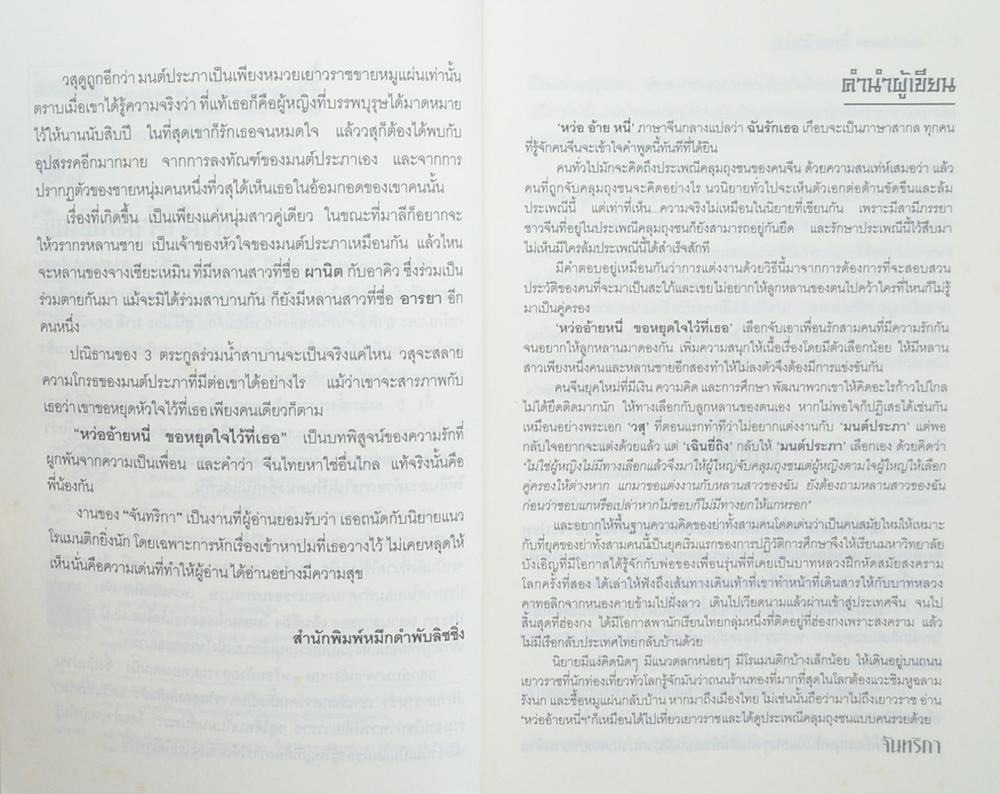 วสุดูถูกอีกว่า มนต์ประภาเป็นเพียงหมวยเยาวราชขายหมูแผ่นเท่านั้น
ตราบเมื่อเขาได้รู้ความจริงว่า ที่แท้เธอก็คือผู้หญิงที่บรรพบุรุษได้มาดหมาย
ไว้ให้นานนับสิบปี ในที่สุดเขาก็รักเธอจนหมดใจ แล้ววสุก็ต้องได้พบกับ
อุปสรรคอีกมากมาย จากการลงทัณฑ์ของมนต์ประภาเอง และจากการ
ปรากฏตัวของชายหนุ่มคนหนึ่งที่วสุได้เห็นเธอในอ้อมกอดของเขาคนนั้น
เรื่องที่เกิดขึ้น เป็นเพียงแค่หนุ่มสาวคู่เดียว ในขณะที่มาลีก็อยากจะ
ให้วรากรหลานชาย เป็นเจ้าของหัวใจของมนต์ประภาเหมือนกัน แล้วไหน
จะหลานของจางเซียะเหมิน ที่มีหลานสาวที่ชื่อ ผานิต กับอาคิว ซึ่งร่วมเป็น
ร่วมตายกันมา แม้จะมิได้ร่วมสาบานกัน ก็ยังมีหลานสาวที่ชื่อ อารยา อีก
คนหนึ่ง
ปณิธานของ 3 ตระกูลร่วมน้ำสาบานจะเป็นจริงแค่ไหน วสุจะสลาย
ความโกรธของมนต์ประภาที่มีต่อเขาได้อย่างไร แม้ว่าเขาจะสารภาพกับ
เธอว่า เขาขอหยุดหัวใจไว้ที่เธอเพียงคนเดียวก็ตาม
“หว่ออ้ายหนี่ ขอหยุดใจไว้ที่เธอ” เป็นบทพิสูจน์ของความรักที่
ผูกพันจากความเป็นเพื่อน และคำว่า จีนไทยหาใช่อื่นไกล แท้จริงนั้นคือ
พี่น้องกัน
งานของ “จันทริกา” เป็นงานที่ผู้อ่านยอมรับว่า เธอถนัดกับนิยายแนว
โรแมนติกยิ่งนัก โดยเฉพาะการหักเรื่องเข้าหาปมที่เธอวางไว้ ไม่เคยหลุดให้
เห็นนั่นคือความเด่นที่ทำให้ผู้อ่าน ได้อ่านอย่างมีความสุข
สำนักพิมพ์หมึกดำพับลิชชิ่ง
คำนำผู้เขียน
‘หว่อ อ้าย หนี่’ ภาษาจีนกลางแปลว่า ฉันรักเธอ เกือบจะเป็นภาษาสากล ทุกคน
ที่รู้จักคนจีนจะเข้าใจคำพูดนี้ทันทีที่ได้ยิน
คนทั่วไปมักจะคิดถึงประเพณีคลุมถุงชนของคนจีน ด้วยความสนเท่ห์เสมอว่า แล้ว
คนที่ถูกจับคลุมถุงชนจะคิดอย่างไร นวนิยายทั่วไปจะเห็นตัวเอกต่อต้านขัดขืนและล้ม
ประเพณีนี้ แต่เท่าที่เห็น...ความจริงไม่เหมือนในนิยายที่เขียนกัน เพราะมีสามีภรรยา
ชาวจีนที่อยู่ในประเพณีคลุมถุงชนก็ยังสามารถอยู่กันยืด และรักษาประเพณีนี้ไว้สืบมา
ไม่เห็นมีใครล้มประเพณีนี้ได้สำเร็จสักที
มีคำตอบอยู่เหมือนกันว่าการแต่งงานด้วยวิธีนี้มาจากการต้องการที่จะสอบสวน
ประวัติของคนที่จะมาเป็นสะใภ้และเขยไม่อยากให้ลูกหลานของตนไปคว้าใครที่ไหนก็ไม่รู้
มาเป็นคู่ครอง
‘หว่ออ้ายหนี่ ขอหยุดใจไว้ที่เธอ’ เลือกจับเอาเพื่อนรักสามคนที่มีความรักกัน
จนอยากให้ลูกหลานมาดองกัน เพิ่มความสนุกให้เนื้อเรื่องโดยมีตัวเลือกน้อย ให้มีหลาน
สาวเพียงหนึ่งคนและหลานชายอีกสองทำให้ไม่ลงตัวจึงต้องมีการแข่งขันกัน
คนจีนยุคใหม่ที่มีเงิน ความคิด และการศึกษา พัฒนาพวกเขาให้คิดอะไรก้าวไปไกล
ไม่ได้ยึดติดมากนัก ให้ทางเลือกกับลูกหลานของตนเอง หากไม่พอใจก็ปฏิเสธได้เช่นกัน
เหมือนอย่างพระเอก ‘วสุ’ ที่ตอนแรกทำทีว่าไม่อยากแต่งงานกับ ‘มนต์ประภา’ แต่พอ
กลับใจอยากจะแต่งด้วยแล้ว แต่ ‘เฉินยี่ถิง’ กลับให้ ‘มนต์ประภา’ เลือกเอง ด้วยคิดว่า
‘ไม่ใช่ผู้หญิงไม่มีทางเลือกแล้วจึงมาให้ผู้ใหญ่จับคลุมถุงชนแต่ผู้หญิงตามใจผู้ใหญ่ให้เลือก
คู่ครองให้ต่างหาก แกมาขอแต่งงานกับหลานสาวของฉัน ยังต้องถามหลานสาวของฉัน
ก่อนว่าชอบแกหรือเปล่าหากไม่ชอบก็ไม่มีทางยกให้แกหรอก’
และอยากให้พื้นฐานความคิดของย่าทั้งสามคนโดดเด่นว่าเป็นคนสมัยใหม่ให้เหมาะ
กับที่ยุคของย่าทั้งสามคนนี้เป็นยุคเริ่มแรกของการปฏิวัติการศึกษาจึงให้เรียนมหาวิทยาลัย
บังเอิญที่มีโอกาสได้รู้จักกับพ่อของเพื่อนรุ่นพี่ที่เคยเป็นบาทหลวงฝึกหัดสมัยสงคราม
โลกครั้งที่สอง ได้เล่าให้ฟังถึงเส้นทางเดินเท้าที่เขาทำหน้าที่เดินสารให้กับบาทหลวง
คาทอลิกจากหนองคายข้ามไปฝั่งลาว เดินไปเวียดนามแล้วผ่านเข้าสู่ประเทศจีน จนไป
สิ้นสุดที่ฮ่องกง ได้มีโอกาสพานักเรียนไทยกลุ่มหนึ่งที่ติดอยู่ที่ฮ่องกงเพราะสงคราม แล้ว
ไม่มีเรือกลับประเทศไทยกลับบ้านด้วย
นิยายมีแง่คิดนิดๆ มีแนวตลกหน่อยๆ มีโรแมนติกบ้างเล็กน้อย ให้เดินอยู่บนถนน
เยาวราชที่นักท่องเที่ยวทั่วโลกรู้จักมันว่าถนนร้านทองที่มากที่สุดในโลกต้องแวะชิมหูฉลาม
รังนก และซื้อหมูแผ่นกลับบ้าน หากมาถึงเมืองไทย ไม่เช่นนั้นถือว่ามาไม่ถึงเยาวราช อ่าน
‘หว่ออ้ายหนี่ฯ’ก็เหมือนได้ไปเที่ยวเยาวราชและได้ดูประเพณีคลุมถุงชนแบบคนรวยด้วย
จันทริกา